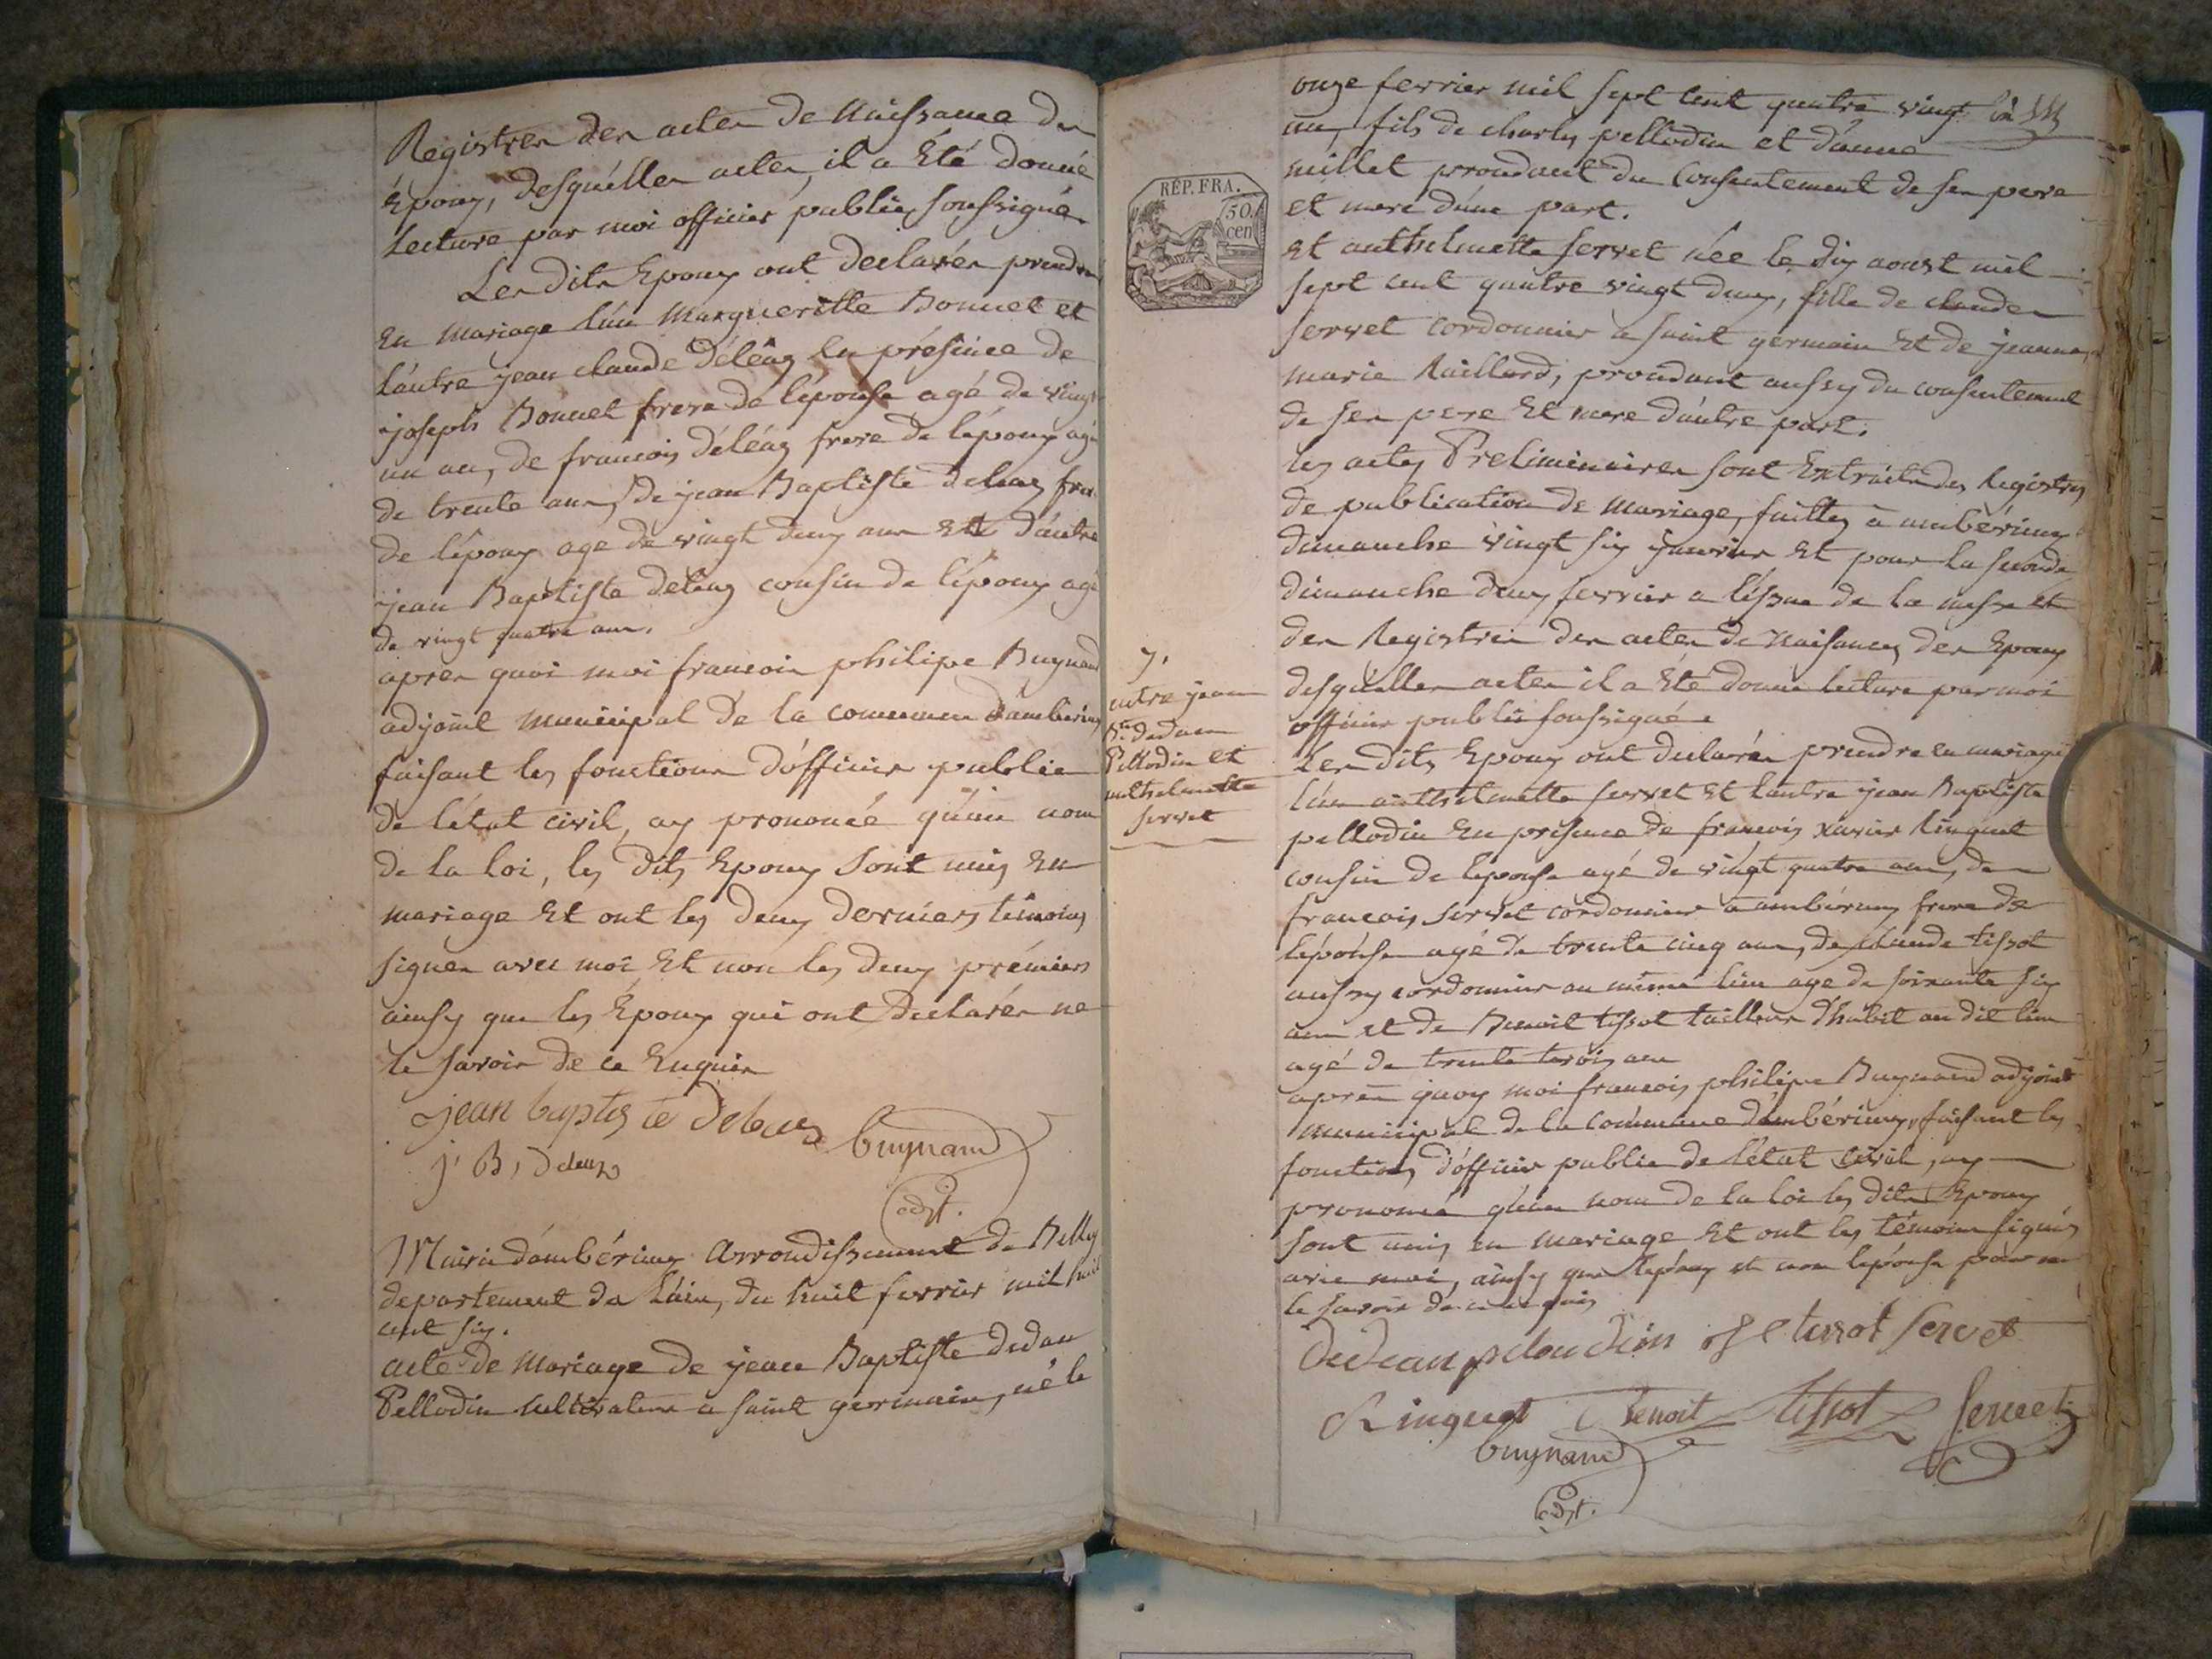 Registres des actes de Naissance des
Époux, desquelles actes, il a Été donné
Lecture par moi officier public soussigné
Les dits Epoux ont declarés prendre
En mariage l'un Marguerite Bonnet et
l'autre jean claude Déléaz En présence de
joseph Bonnet frere de l'épouse agé de vingt
un ans, de francois déléaz frere de l'époux agé
de trente ans, de jean Baptiste deleaz frere
de l'époux agé de vingt deux ans Et d'autre
jean Baptiste deleaz cousin de l'époux agé
de vingt quatre ans.
apres quoi moi francois philipe Buynand
adjoint municipal de la commune d'ambérieux
faisant les fonctions d'officier public
de l'état civil, ay prononcé qu'au nom
de la loi, les dits Epoux sont unis En
mariage Et ont les deux derniers témoins
signés avec moi Et non les deux prémiers
ainsy que les Époux qui ont declarés ne
le savoir de ce Enquis
jean baptiste deleaz
j. B, deleaz Buynand
adjt.
Mairie d'ambérieux arrondissement de Belley
departement de l'ain, du huit fevrier mil huit
cent six.
acte de mariage de jean Baptiste dedan
Pellodin cultivateur a saint germain, né le
onze fevrier mil sept cent quatre vingt
un, fils de charles pellodin et d'anne
millet procedant du consentement de ses pere
et mere d'une part.
RÉP. FRA.
50.
cen
et anthelmette servet née le dix aoust mil
sept cent quatre vingt deux, fille de claude
servet cordonnier a saint germain Et de jeanne
marie Raillard, procedant aussy du consentement
de ses pere Et mere d'autre part.
les actes Preliminaires sont Extraits des Registres
de publication de mariage, faittes à ambérieux
dimanche vingt six janvier Et pour la seconde
dimanche deux fevrier a l'éssue de la messe et
des Registres des actes de Naisances des Epoux
desquelles actes il a Été donné lecture par moi
officier public soussigné.
7.
entre jean
Bte dedan
Pellodin et
anthelmette
servet
Les dits Epoux ont declarés prendre en mariage
l'un anthelmette servet Et l'autre jean Baptiste
pellodin En presence de francois xavier Ringuet
cousin de l'epouse agé de vingt quatre ans, de
francois servet cordonnier a ambérieux frere de
l'épouse agé de trente cinq ans, de claude tissot
aussy cordonnier au même lieu agé de soixante six
ans et de Benoit tissot tailleur d'habit au dit lieu
agé de trente trois ans
apres quoy moi francois philipe Buynand adjoint
municipal de la commune d'ambérieux, faisant les
fonctions d'officier public de l'état civil, ay
prononcé qu'au nom de la loi les dits Epoux
sont unis en mariage Et ont les témoins signés
avec moi, ainsy que l'époux et non l'épouse pour ne
le savoir de ce enquis
dedean tissot servet
Ringuet Benoit tissot servet
Buynand
adjt.